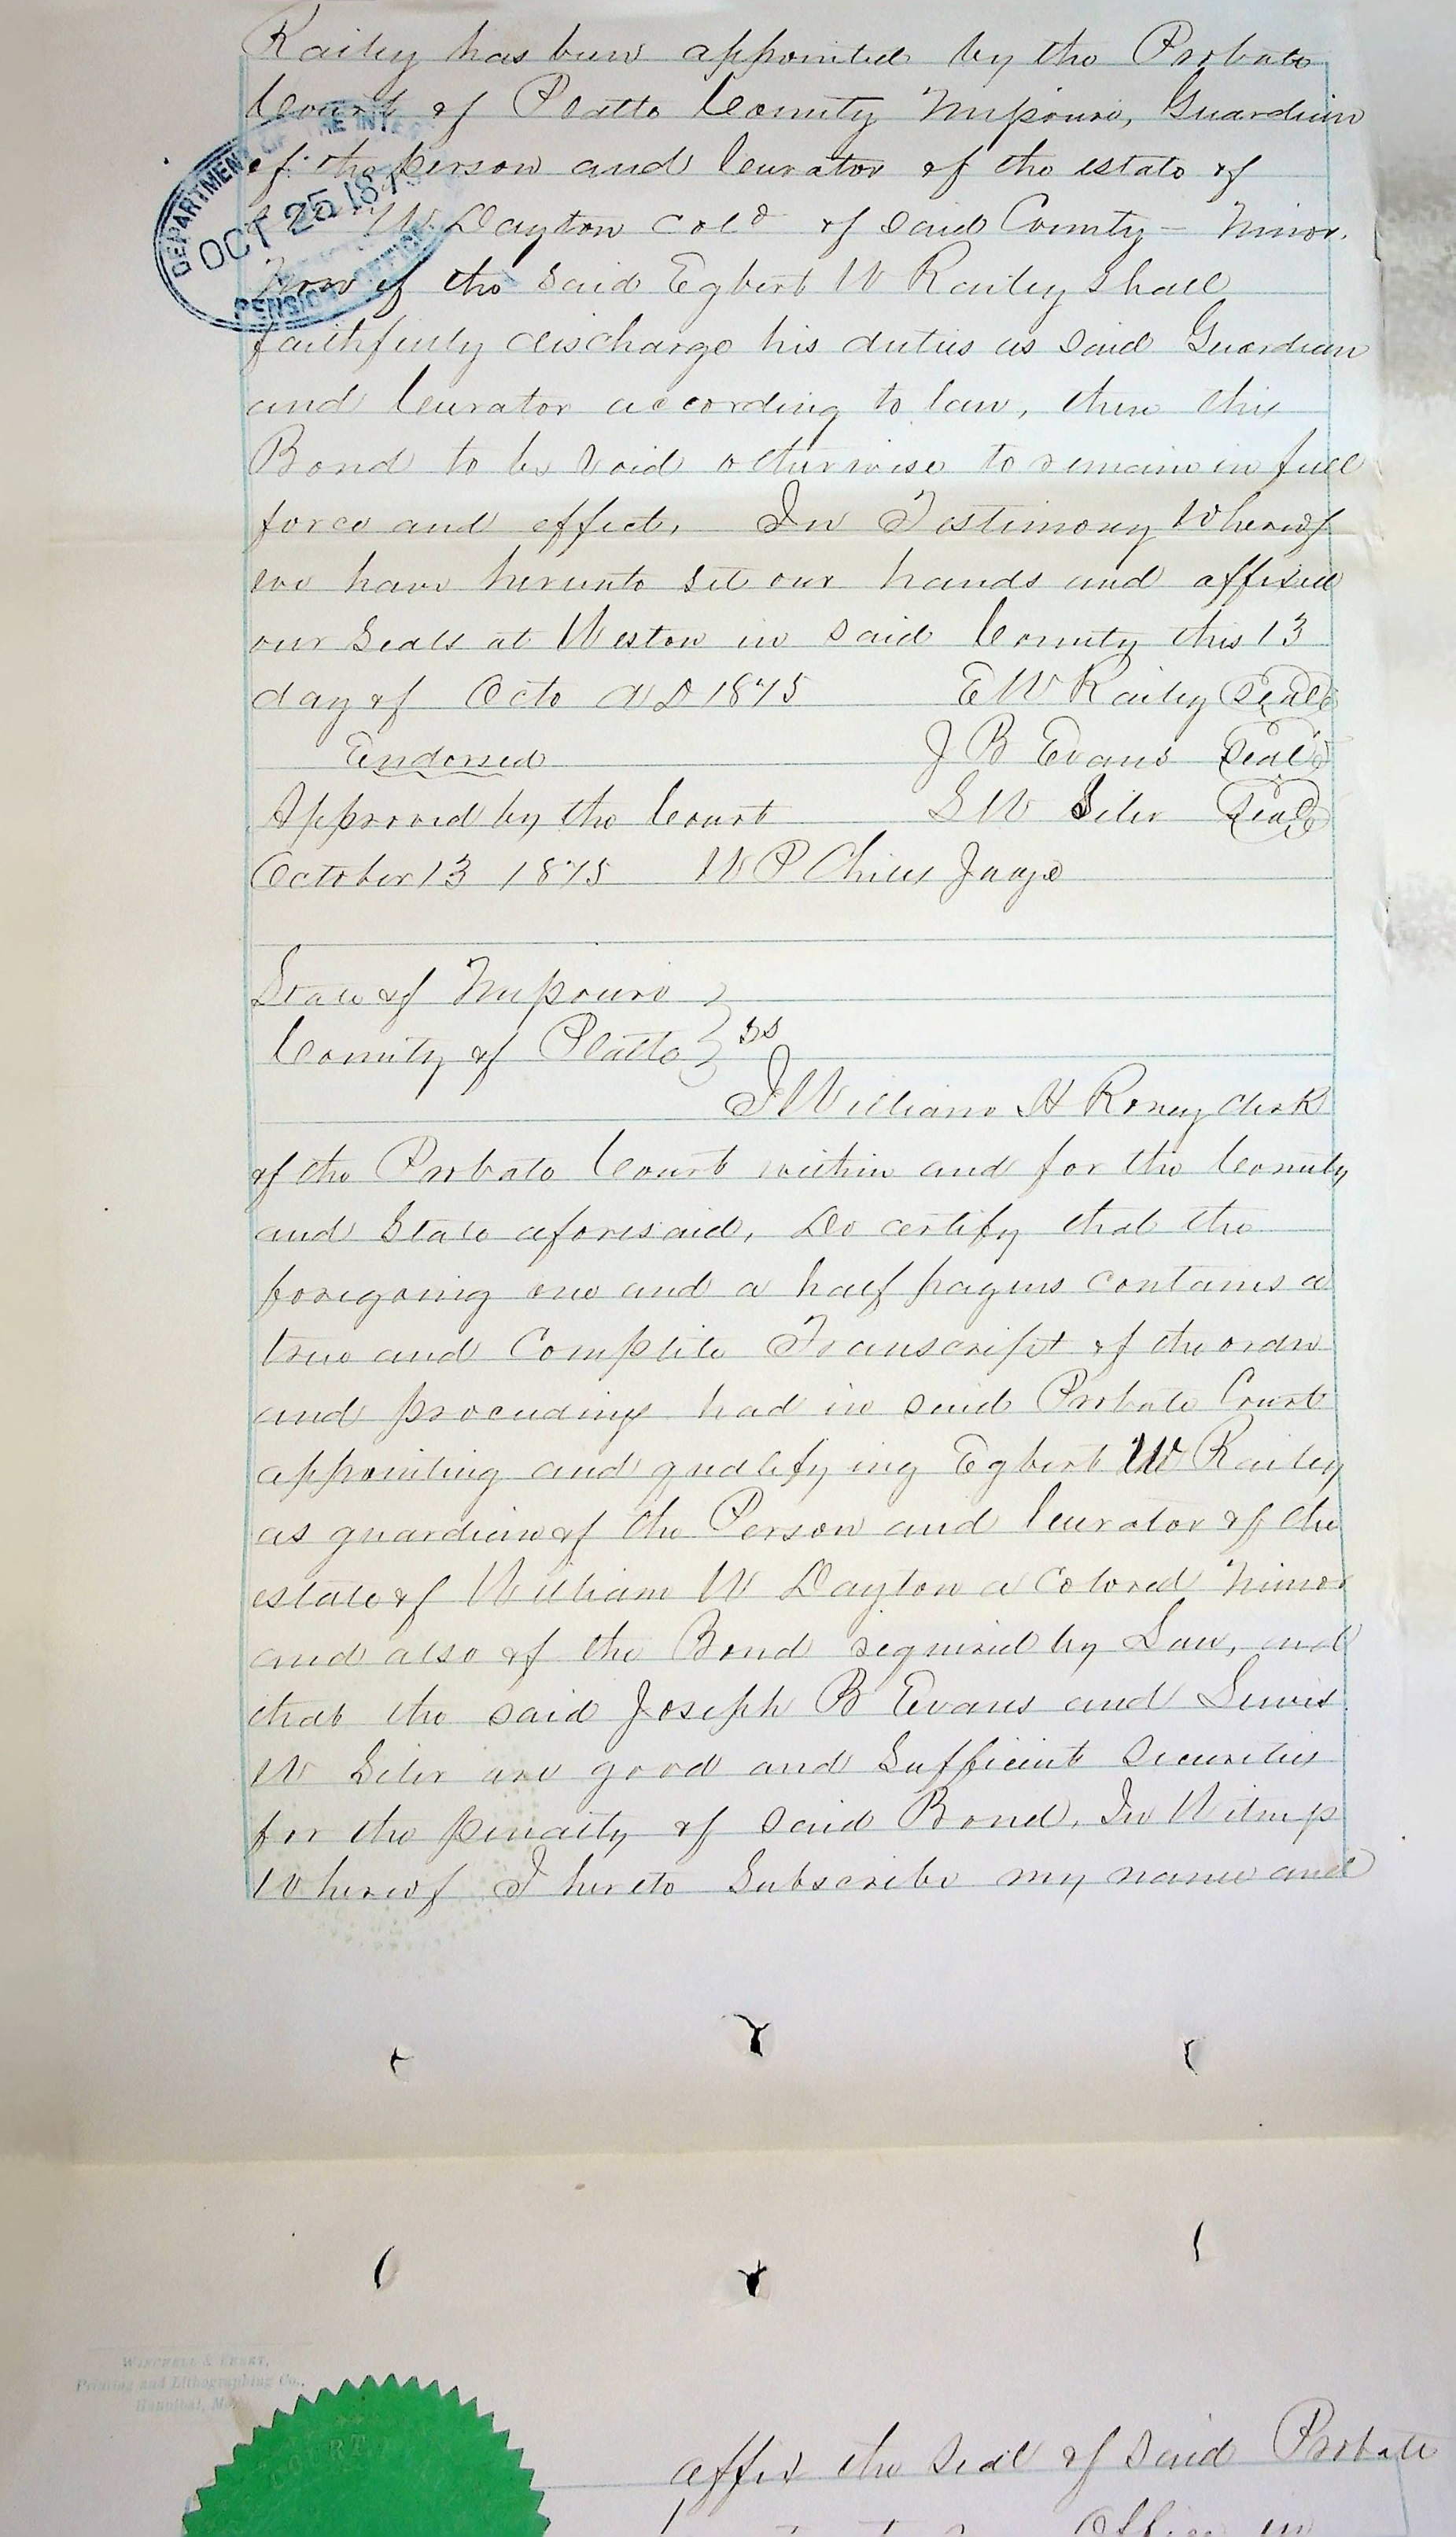 Railey has been appointed by the Probate
Court of Platte County Missouri, Guardian
of the person and Curator of the estate of
W. Dayton Cold of said County - Minor.
Now if the said Egbert W Railey shall
faithfully discharge his duties as said Guardian
and Curator according to law, then this
Bond to be void otherwise to remain in full
force and effect. In Testimony Whereof
we have hereunto set our hands and affixed
our Seals at Weston in said County this 13
day of Octo A D 1875 E W Railey Seal
Endorsed J B Evans Seal
Approved by the Court L W Siler Seal
October 13 1875 W P Chiles Judge
State of Missouri
County of Platte } SS
I William H Roney Clerk
of the Probate Court within and for the County
and State aforesaid, Do certify that the
foregoing one and a half pages contains a
true and Complete Transcript of the order
and proceedings had in said Probate Court
appointing and qualifying Egbert W Railey
as guardian of the Person and Curator of the
estate of William W Dayton a Colored Minor
and also of the Bond required by Law, and
that the said Joseph B Evans and Lewis
W Siler are good and Sufficient Securities
for the penalty of said Bond. In Witness
Whereof I hereto Subscribe my name and
DEPARTMENT OF THE INTE
OCT 25 187
PENSION OFFICE
Printing and Lithographing Co.,
Hannibal, Mo.
COURT
affix the seal of said Probate
Office in